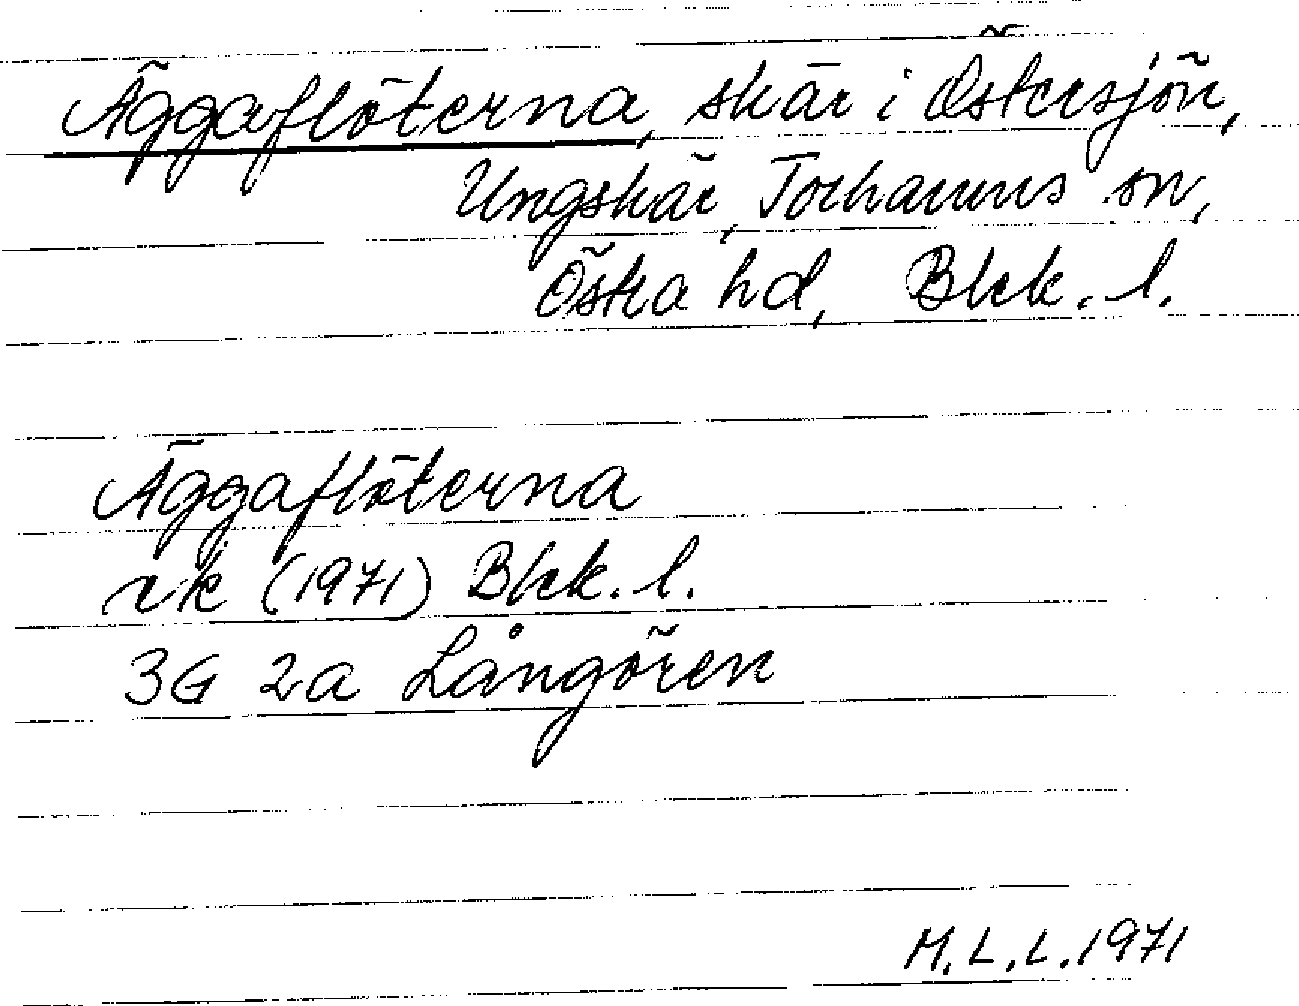 Äggaflöterna, skär i Östersjön,
Ungskär, Torhamns sn,
Östra hd, Blek. l.
Äggaflöterna
rek (1971) Blek. l.
3G 2a Långören
M.L.L. 1971